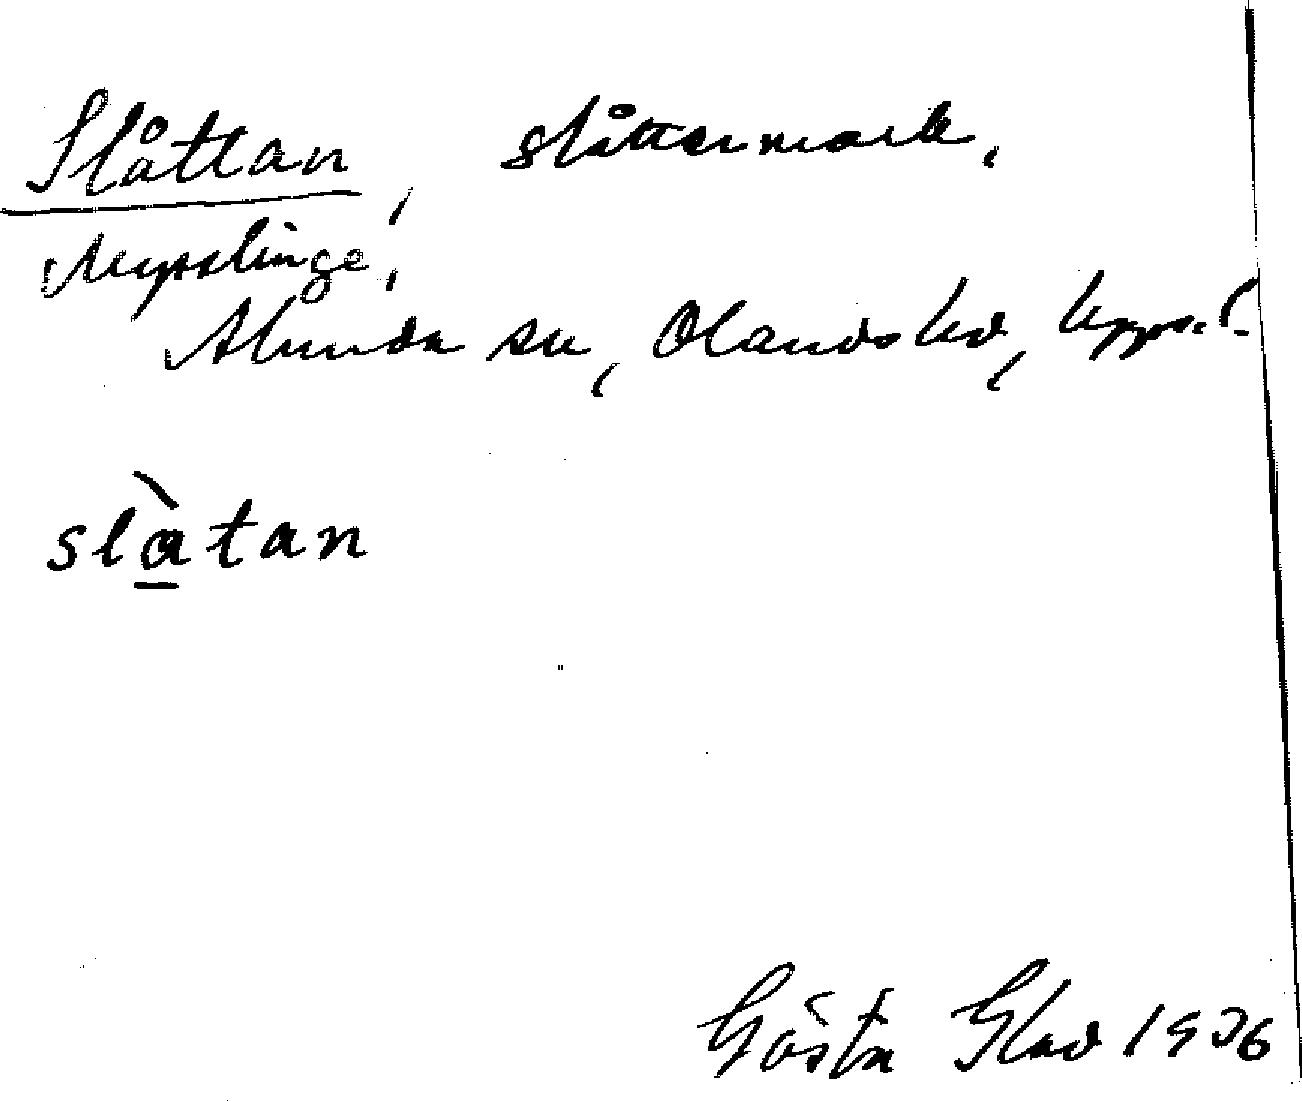 Slåttan, slåttermark,
Mysslinge,
Alunda sn, Olands hd, Uppl.
slàtan
Gösta Glad 1936